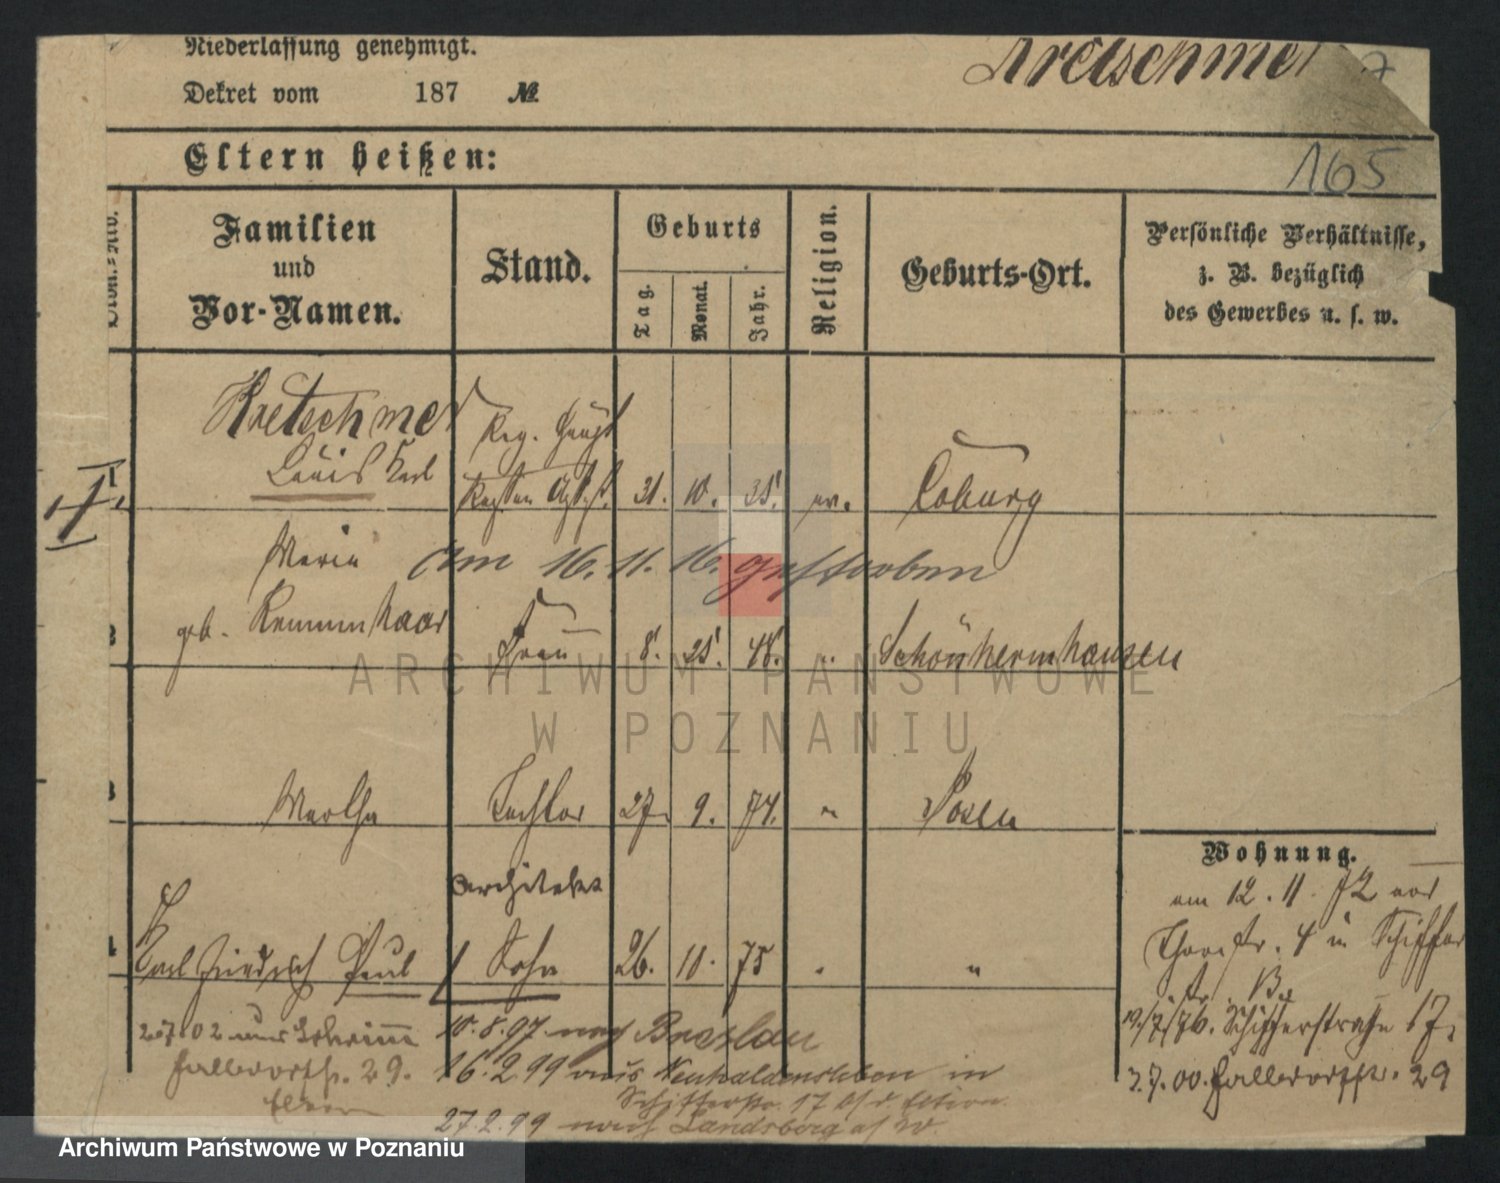 Niederlassung genehmigt.
Dekret vom 187 №
Kretschmer
7
165
Eltern heißen:
Familien
und
Vor-Namen.
Stand.
Geburts
Tag.
Monat.
Jahr.
Religion.
Geburts-Ort.
Persönliche Verhältnisse,
z. B. bezüglich
des Gewerbes u. s. w.
Kretschmer
Louis Karl
Reg.
31. 10. 35. ev. Coburg
I.
1
Maria am 16. 11. 16. gestorben
geb.
2
Frau 8. 48. "
3
Martha Tochter 27. 9. 74. " Posen
Architekt
4
Karl Friedrich Paul / Sohn 26. 10. 75 " "
Wohnung.
am 12. 11. 72 von
Thorstr. 4 in Schiffer
str.
19/7/76. Schifferstraße 17.
2.7.00. Halldorfstr. 29
2.7.02 aus
Halldorfstr. 29.
Eltern
10.8.97 nach Breslau
16.2.99 aus Neuhaldensleben in
Schifferstr. 17 b/d Eltern.
27.2.99 nach Landsberg a/W.
ARCHIWUM PAŃSTWOWE
W POZNANIU
Archiwum Państwowe w Poznaniu